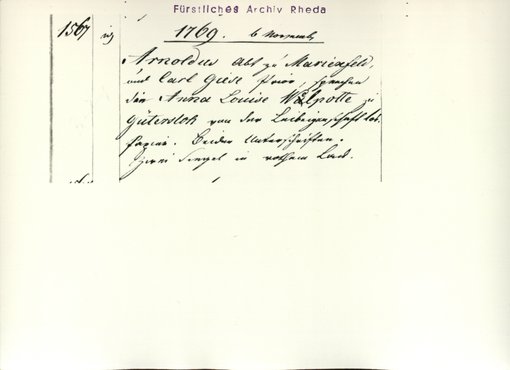 Fürstliches Archiv Rheda
1567 1769. 6 Novemb.
Arnoldus Abt zu Marienfeld,
und Carl Giese Prior, sprechen
die Anna Louise Walpotte zu
Gütersloh von der Leibeigenschaft los.
Papier. Beider Unterschriften.
Zwei Siegel in rothem Lack.